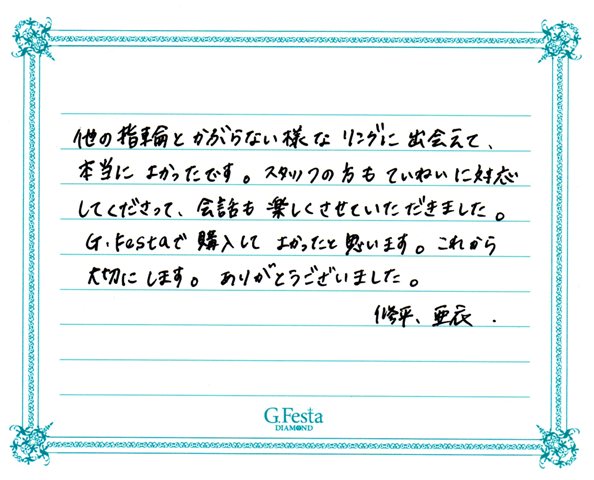 他の指輪とかぶらない様なリングに出会えて、
本当によかったです。スタッフの方もていねいに対応
してくださって、会話も楽しくさせていただきました。
G.Festaで購入してよかったと思います。これから
大切にします。ありがとうございました。
修平、亜衣.
G.Festa
DIAMOND